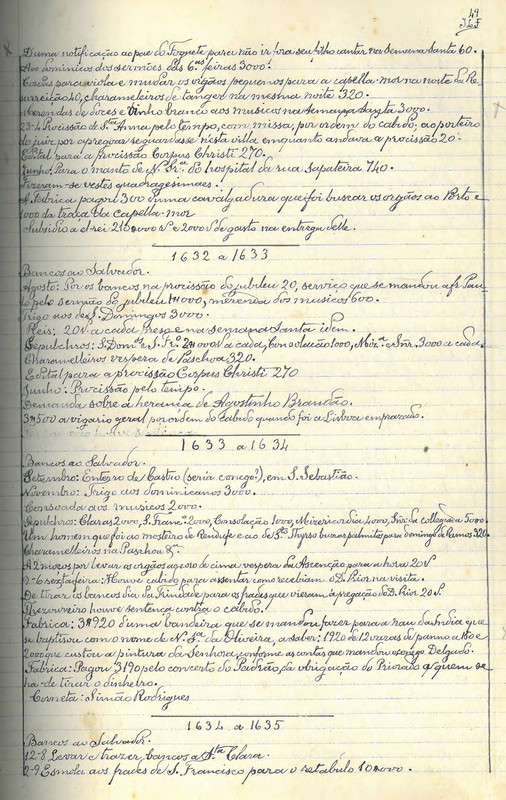 49
J.L.F
Duma notificação ao pae do Foguete para não ir fóra seu filho cantar na semana santa 60.
Aos dominicos dos sermões das 6.as feiras 3000.
Cordas para viola e mudar os orgãos pequenos para a capella-mor na noite da Re-
surreição 40, charameleiros de tanger na mesma noite 320.
Merendas de doces e vinho branco aos musicos na semana santa 3000.
23-4 Procissão de S.ta Anna pelo tempo, com missa, por ordem do cabido; ao porteiro
do juiz por apregoar se guardasse nesta villa emquanto andava a procissão 20.
Edital para a procissão Corpus Christi 270.
Junho: Para o manto de N. Sr.a do hospital da rua sapateira 740.
Fizeram-se vestes quadragesimaes.
A Fabrica pagou 300 duma cavalgadura que foi buscar os orgãos ao Porto e
1000 da traça da Capella-mor
Subsidio a el-rei 218000 e 2000 de gasto na entrega delle.
1632 a 1633
Bancos ao Salvador.
Agosto: Por os bancos na procissão do jubileu 20, serviço que se mandou a fr. Pau-
lo pelo sermão do jubileu 1000, merenda dos musicos 600.
Trigo aos de S. Domingos 3000.
Pleis: 20 a cada mez e na semana santa idem.
Sepulchros: S. Dom.os e S. Fr.co 2000 a cada, Consolação 1000, Miz.a e Snr.a 3000 a cada.
Charameleiros vespera de Paschoa 320.
Edital para a procissão Corpus Christi 270
Junho: Procissão pelo tempo.
Demanda sobre a herança de Agostinho Brandão.
3500 a vigario geral por ordem do Cabido quando foi a Lisboa emprazado.
1633 a 1634
Bancos ao Salvador.
Setembro: Enterro de Castro (seria conego?), em S. Sebastião.
Novembro: Trigo aos dominicanos 3000.
Consoada aos musicos 2000.
Sepulchros: Claras 2000, S. Franc.co 2000, Consolação 1000, Misericordia 4000, Snr.a da collegiada 5000.
Um homem que foi ao mosteiro de Rendufe e ao de S.to Thyrso buscar palmitos para domingo de Ramos 320.
Charameleiros na Paschoa &.
A 2 moços por levar os orgãos a cima vespera da Ascenção para a hora 20
2-6 sexta feira: Houve cabido para assentar como recebiam o D. Prior na visita.
De tirar os bancos dia da Trindade para os frades que vieram á pregação do D. Prior 20.
Thesoureiro houve sentença contra o cabido.
Fabrica: 3920 duma bandeira que se mandou fazer para a nau da India que
se baptisou com o nome de N. S.a da Oliveira, a saber: 1920 de 12 varas de panno a 160 e
2000 que custou a pintura da Senhora, conforme as contas que mandou o conego Delgado.
Fabrica: Pagou 3190 pelo concerto do Padrão, da obrigação do Priorado a quem se
ha-de tirar o dinheiro.
Corneta: Simão Rodrigues
1634 a 1635
Bancos ao Salvador.
12-8 Levar e trazer bancos a S.ta Clara.
2-9 Esmola aos frades de S. Francisco para o retabulo 10000.